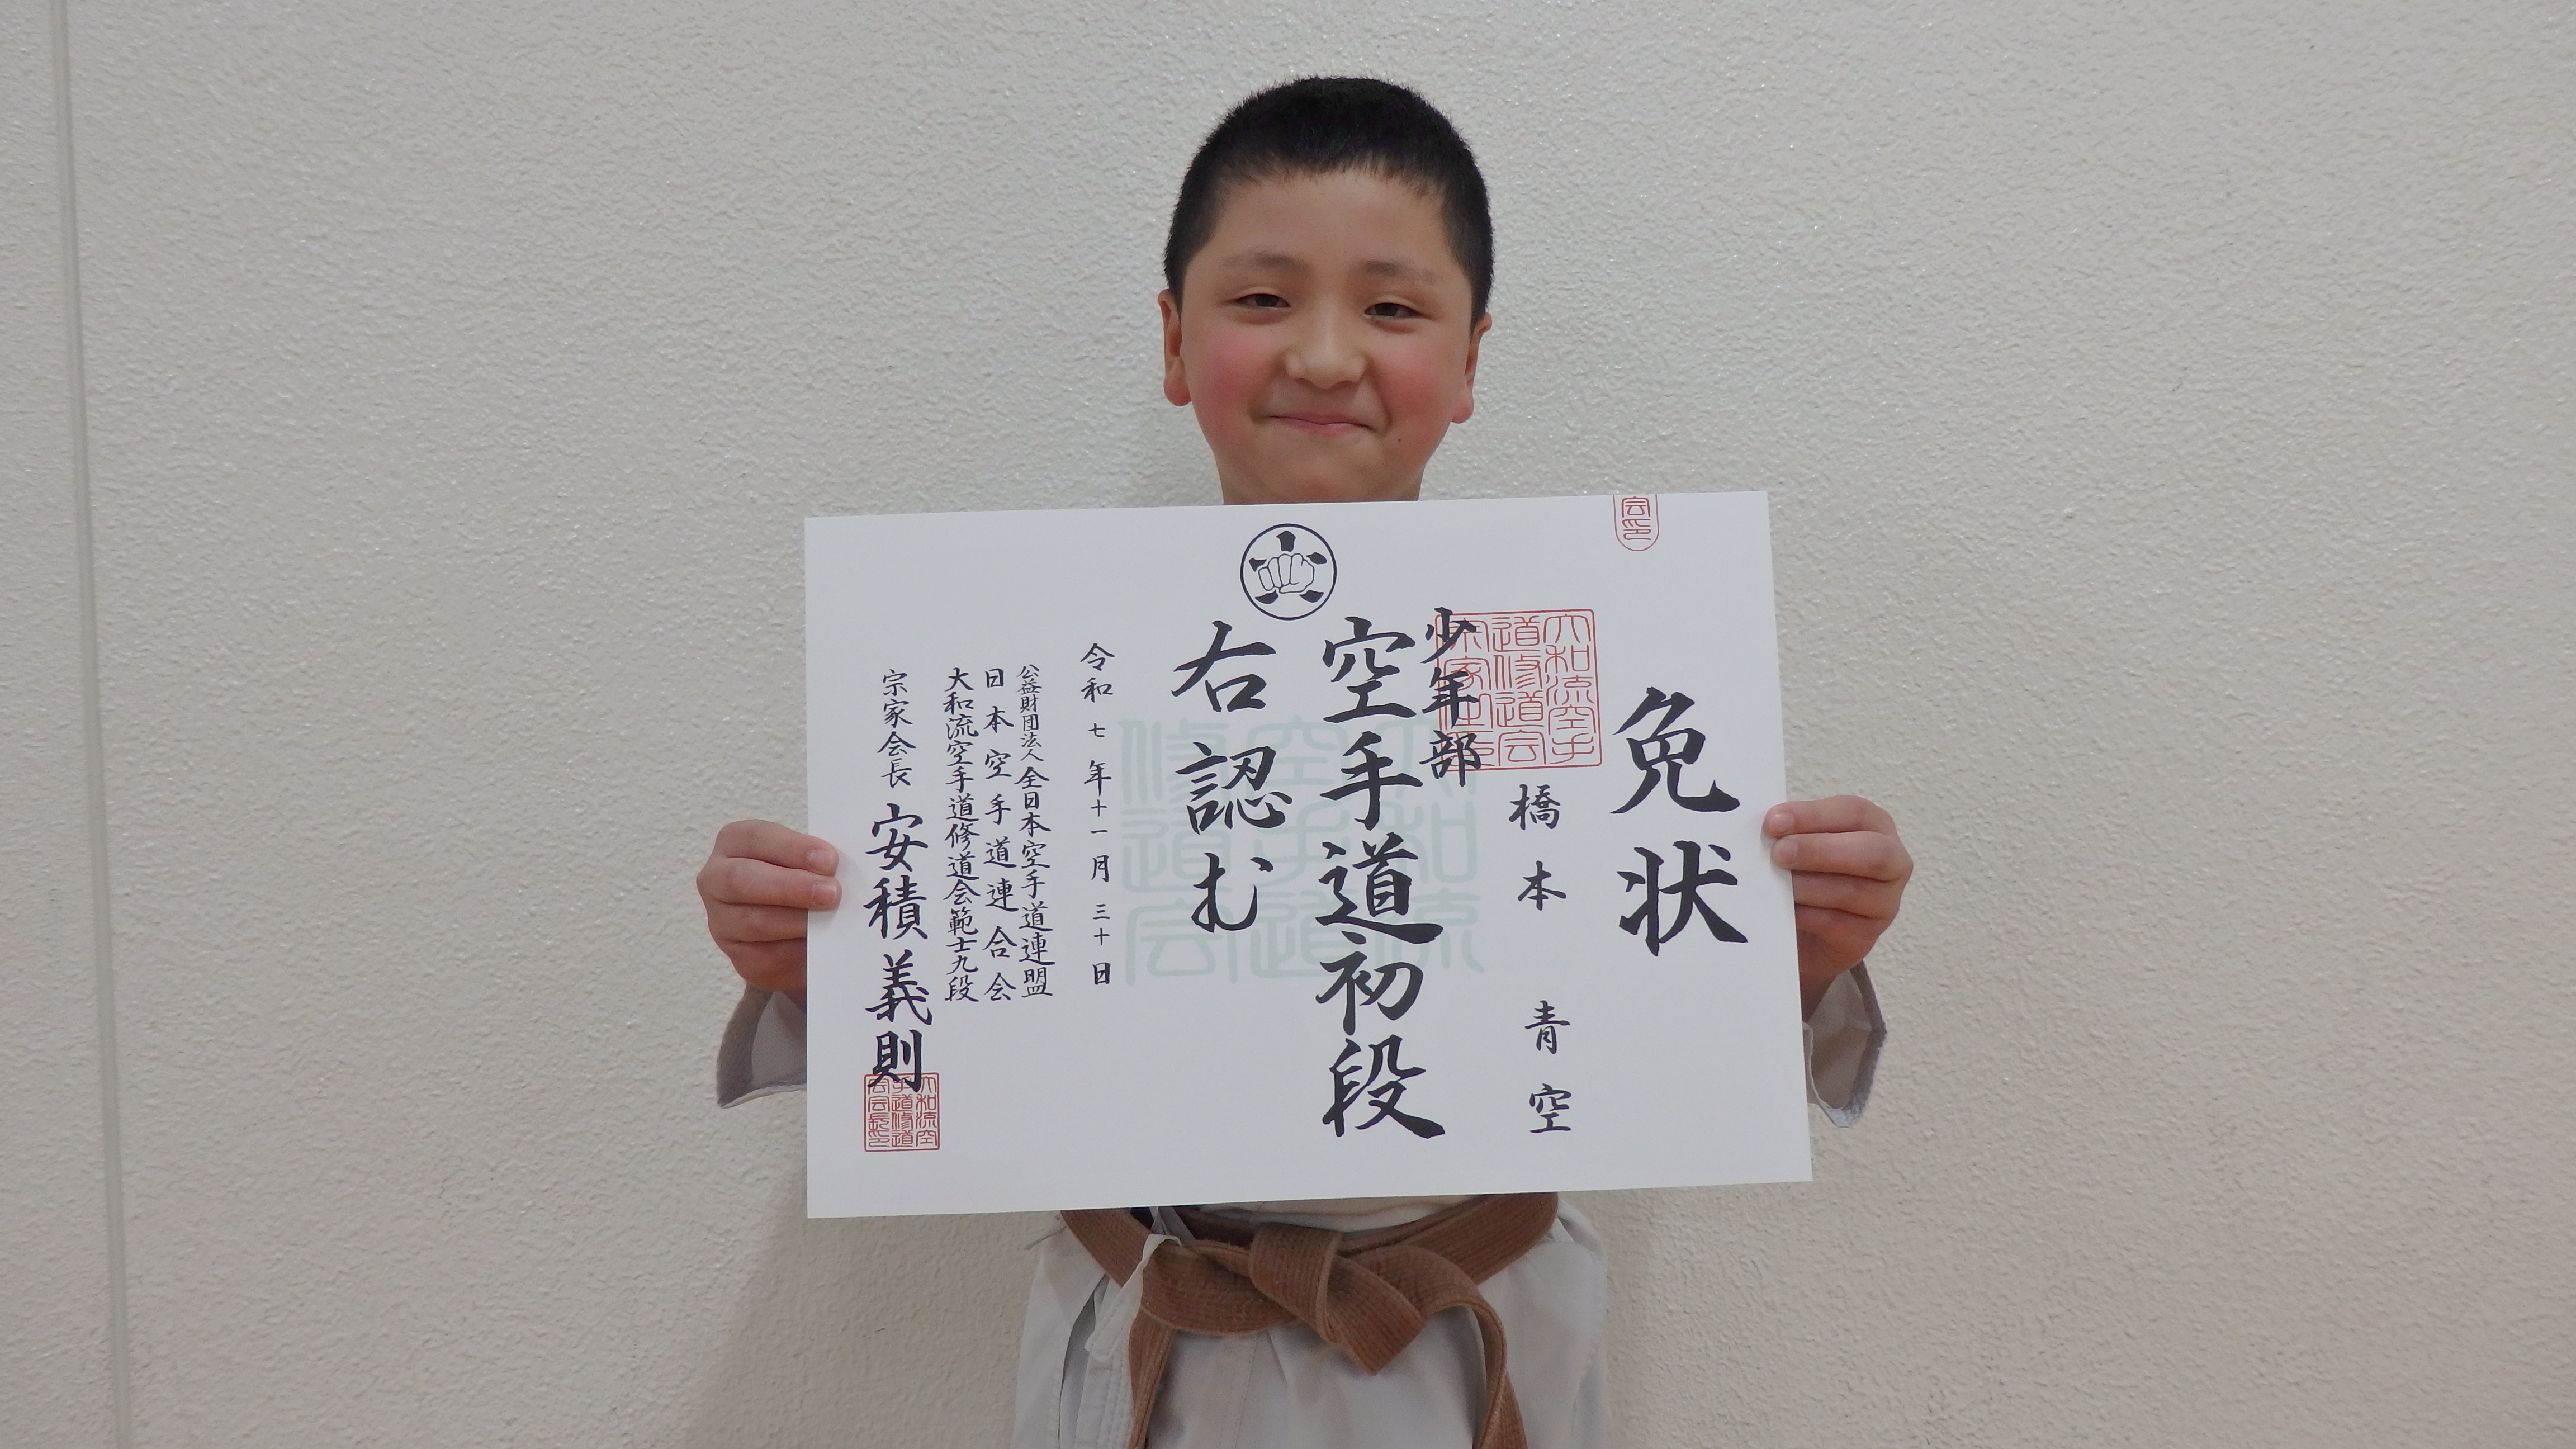 免状
橋本 青空
少年部
空手道初段
右認む
令和七年十一月三十日
公益財団法人全日本空手道連盟
日本空手道連合会
大和流空手道修道会範士九段
宗家会長 安積義則
大和流空手
道修道会
大和流
空手道
修道会
大和流空
手道修道
会会長印
会印